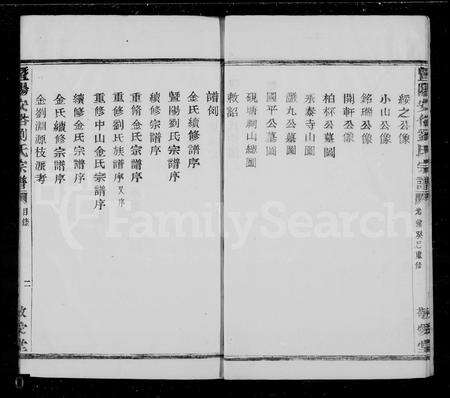 暨陽安
劉氏宗譜
綏之公像
小山公像
銘璣公像
開軒公像
柏杯公墓圖
永泰寺山圖
國平公墓圖
硯塘祠山圖
敕詔
譜例
金氏續修譜序
暨陽劉氏宗譜序
續修宗譜序
重脩金氏宗譜序
重修劉氏族譜序又序
重修中山金氏宗譜序
續修金氏宗譜序
金氏續修宗譜序
金劉淵源枝派考
暨陽安
劉氏宗譜
目錄
二
敦堂
FamilySearch